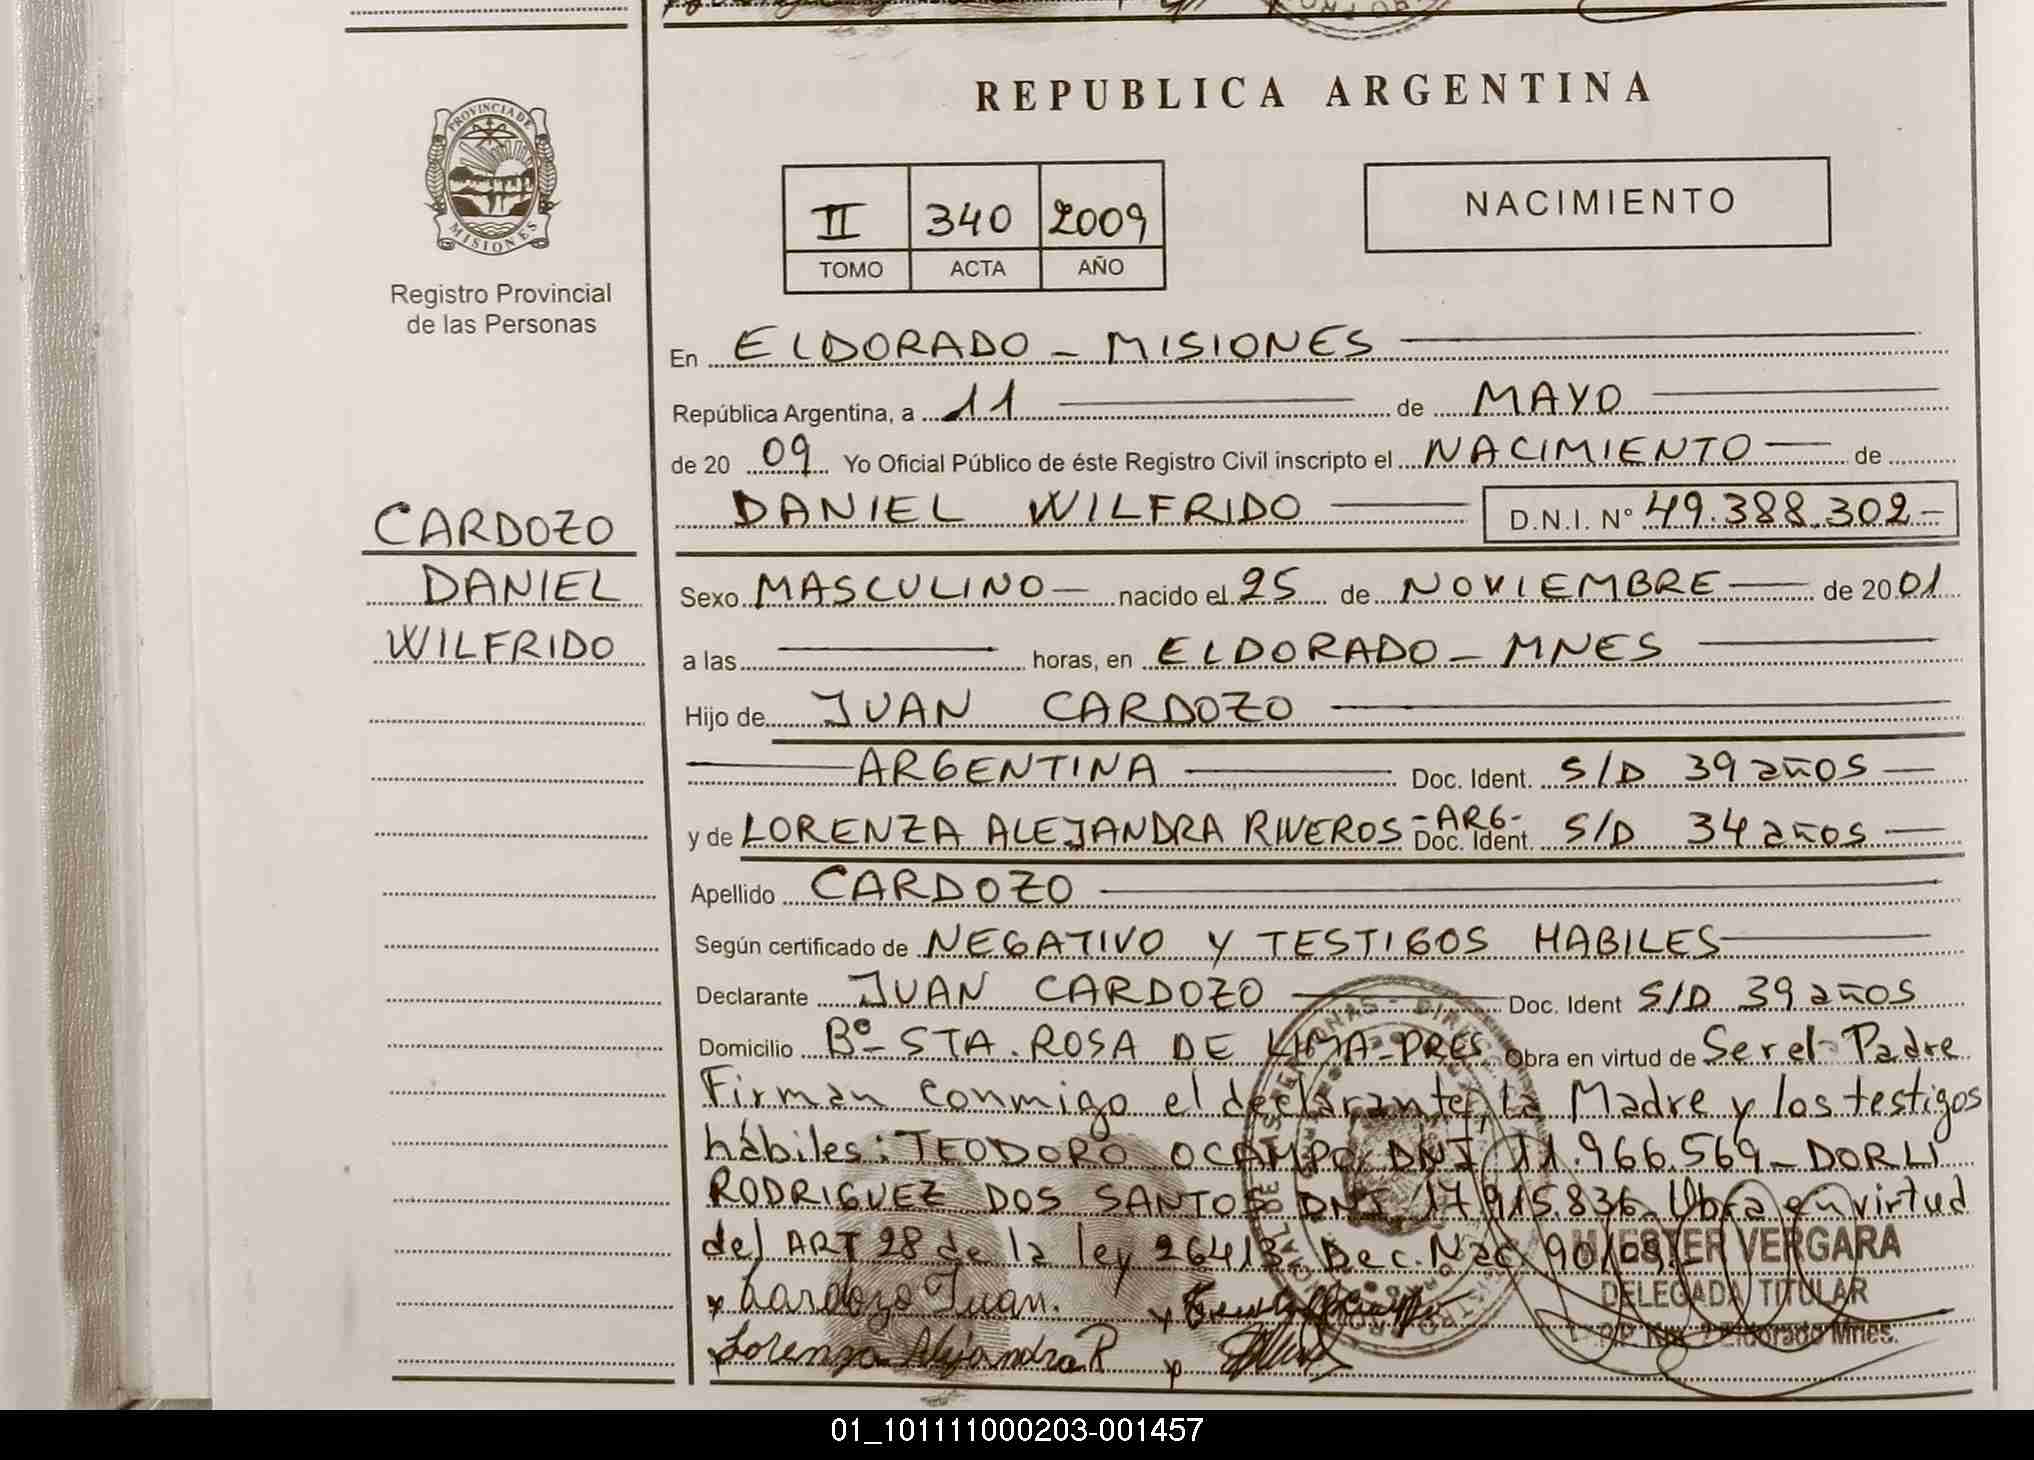 PROVINCIA DE
MISIONES
Registro Provincial
de las Personas
CARDOZO
DANIEL
WILFRIDO
REPUBLICA ARGENTINA
II 340 2009
TOMO ACTA AÑO
NACIMIENTO
En ELDORADO - MISIONES
República Argentina, a 11 de MAYO
de 20 09 Yo Oficial Público de éste Registro Civil inscripto el NACIMIENTO de
DANIEL WILFRIDO D.N.I. N° 49.388.302-
Sexo MASCULINO nacido el 25 de NOVIEMBRE de 20 01
a las horas, en ELDORADO - MNES
Hijo de JUAN CARDOZO
ARGENTINA Doc. Ident. S/D 39 años
y de LORENZA ALEJANDRA RIVEROS -ARG- Doc. Ident. S/D 34 años
Apellido CARDOZO
Según certificado de NEGATIVO Y TESTIGOS HABILES
Declarante JUAN CARDOZO Doc. Ident S/D 39 años
Domicilio Bº- STA. ROSA DE LIMA-PRES. Obra en virtud de Ser el Padre
Firman conmigo el declarante, la Madre y los testigos
hábiles: TEODORO OCAMPO DNI 11.966.569- DORLI
RODRIGUEZ DOS SANTOS DNI 17.915.836- Obra en virtud
del ART 28 de la ley 26413- Dec. Nac. 90/09.
Cardozo Juan.
Lorenza Alejandra R
ESTER VERGARA
DELEGADA TITULAR
Eldorado Mnes.
01_101111000203-001457